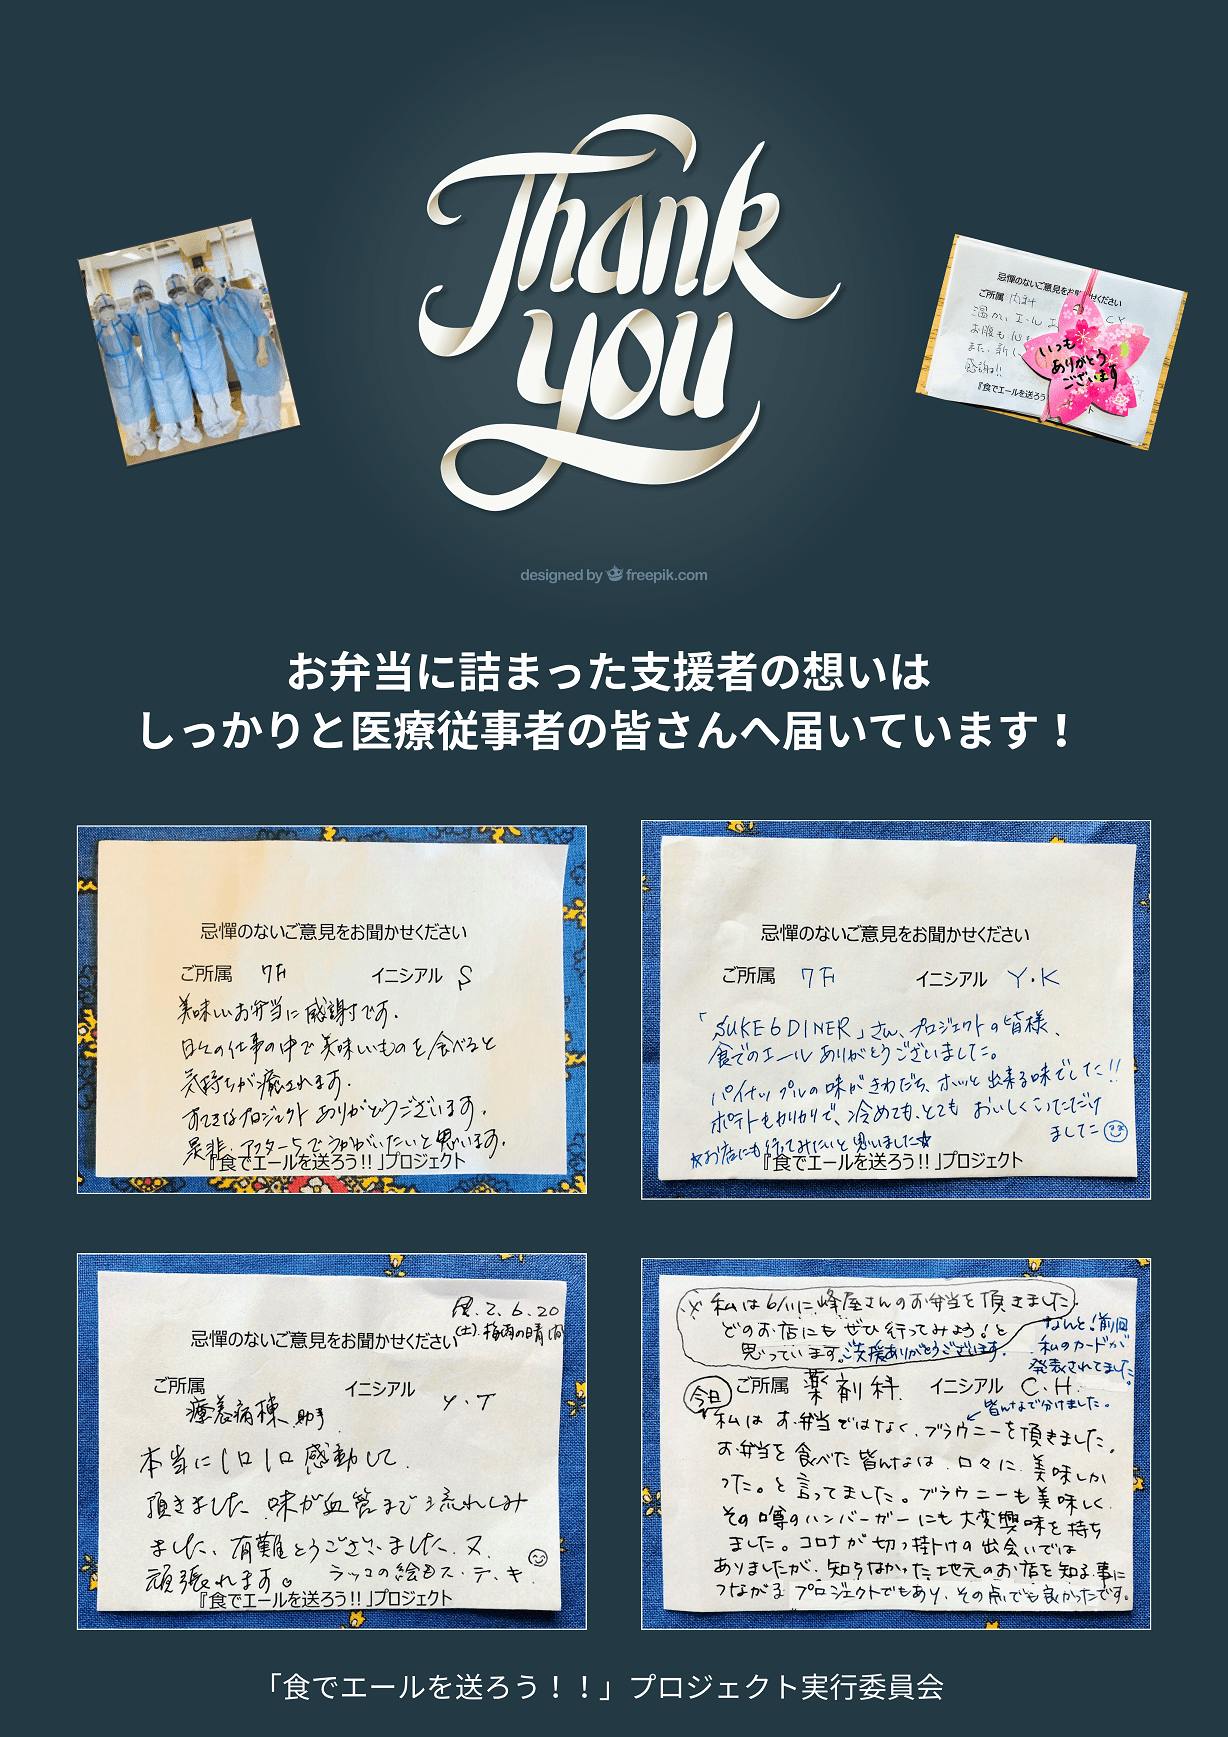 Thank
you
忌憚のないご意見をお聞かせください
ご所属 内科
いつも
ありがとう
ございます
designed by freepik.com
お弁当に詰まった支援者の想いは
しっかりと医療従事者の皆さんへ届いています！
忌憚のないご意見をお聞かせください
ご所属 7F イニシアル S
美味しいお弁当に感謝です。
日々の仕事の中で美味しいものを食べると
気持ちが癒されます。
すてきなプロジェクトありがとうございます。
是非、アフター5でうかがいたいと思います。
『食でエールを送ろう!!』プロジェクト
忌憚のないご意見をお聞かせください
ご所属 7F イニシアル Y.K
「SUKE6 DINER」さん、プロジェクトの皆様、
食でのエールありがとうございました。
パイナップルの味がきわだち、ホッと出来る味でした!!
ポテトもカリカリで、冷めても、とてもおいしくいただけ
ました
☆お店にも行ってみたいと思いました☆
『食でエールを送ろう!!』プロジェクト
R.2.6.20
(土).梅雨の晴れ間
忌憚のないご意見をお聞かせください
ご所属 イニシアル Y.T
療養病棟 助手
本当に1口1口感動して、
頂きました 味が血管まで流れしみ
ました、有難とうございました、又、
頑張れます。 ラッコの絵もス・テ・キ
『食でエールを送ろう!!』プロジェクト
※私は6/1に峰屋さんのお弁当を頂きました。
どのお店にもぜひ行ってみよう！と
思っています。ご支援ありがとうございます。
なんと！前回
私のカードが
発表されてました。
今日 ご所属 薬剤科 イニシアル C.H.
皆んなで分けました。
私はお弁当ではなく、ブラウニーを頂きました。
お弁当を食べた皆んなは、口々に、美味しか
った。と言ってました。ブラウニーも美味しく、
その噂のハンバーガーにも大変興味を持ち
ました。コロナが切っ掛けの出会いでは
ありましたが、知らなかった地元のお店を知る事に
つながるプロジェクトでもあり、その点でも良かったです。
「食でエールを送ろう！！」プロジェクト実行委員会